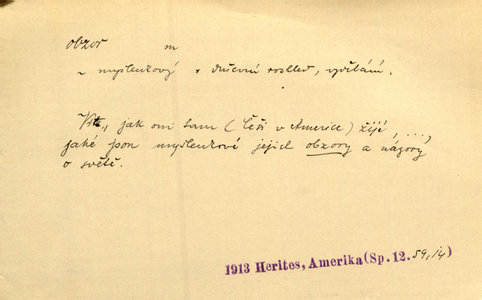 obzor m
~ myšlenkový × duševní rozhled, vzdělání.
Vida, jak oni tam (Češi v Americe) žijí, ...,
jaké jsou myšlenkové jejich obzory a názory
o světě.
1913 Herites, Amerika (Sp. 12. 59, iý)